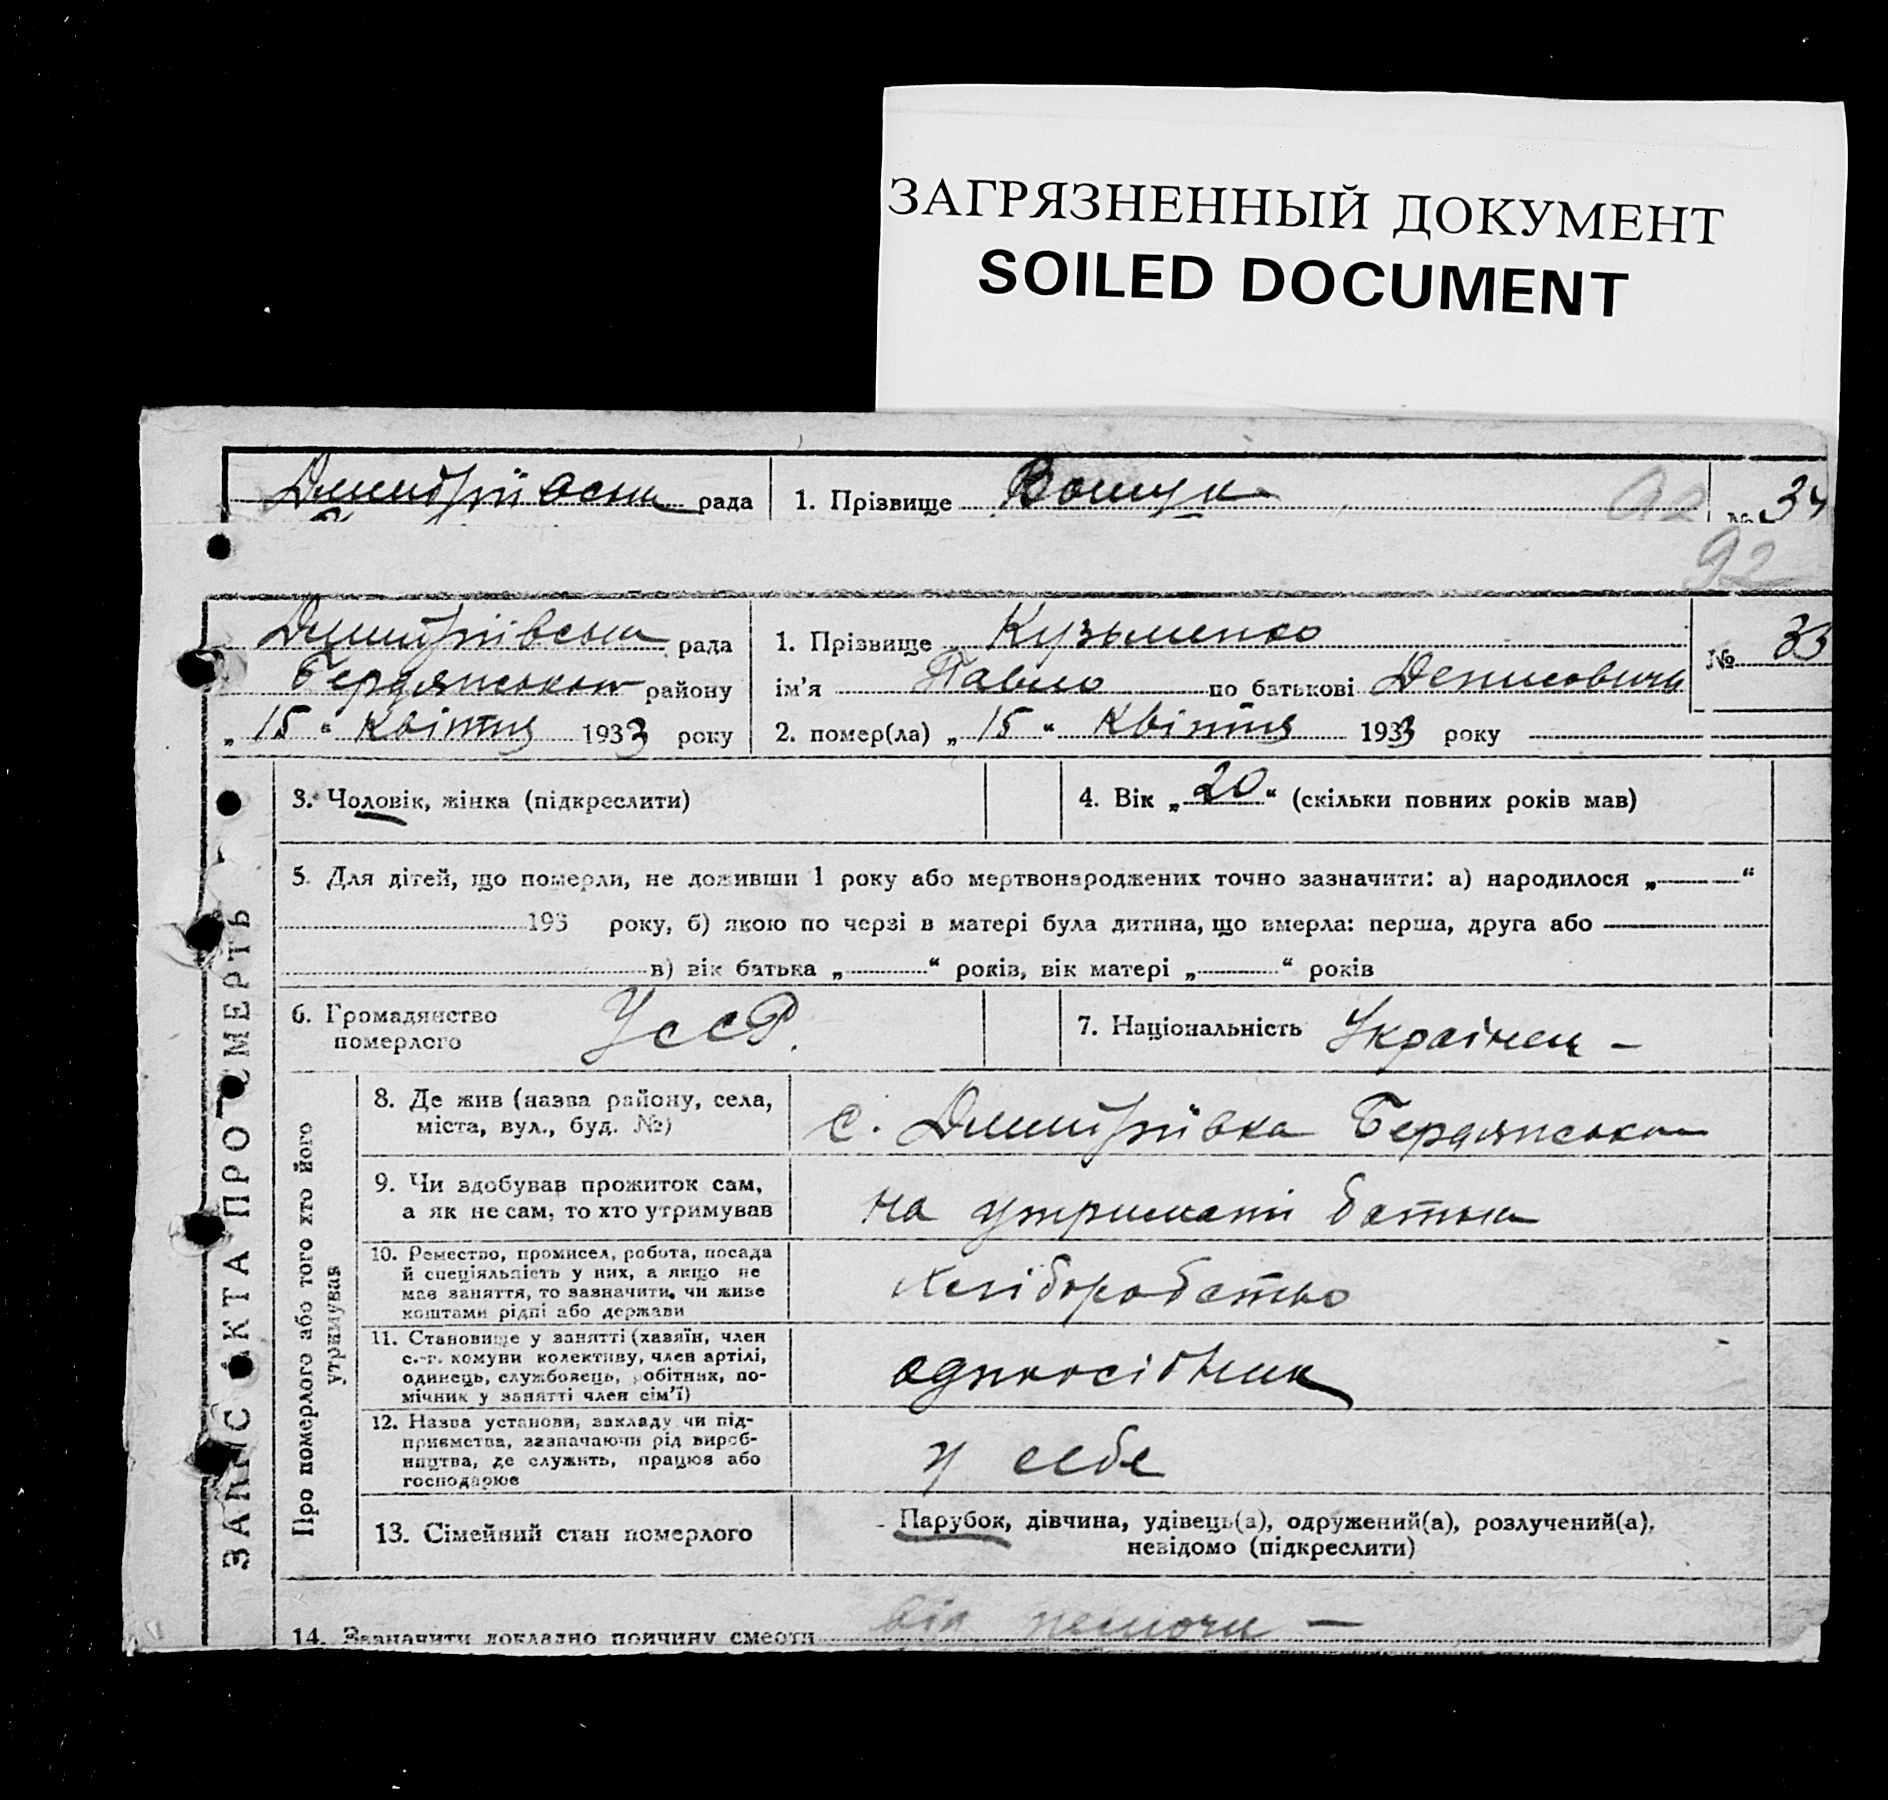 ЗАГРЯЗНЕННЫЙ ДОКУМЕНТ
SOILED DOCUMENT
Дмитріївська рада
1. Прізвище
92
34
92
Дмитріївська рада
Бердянського району
„ 15 “ Квітня 1933 року
1. Прізвище Кузьменко
ім’я Павло по батькові Денисович
№ 33
2. помер(ла) „ 15 “ Квітня 1933 року
ЗАПИС АКТА ПРО СМЕРТЬ
3. Чоловік, жінка (підкреслити)
4. Вік „ 20 “ (скільки повних років мав)
5. Для дітей, що померли, не доживши 1 року або мертвонароджених точно зазначити: а) народилося „ “
193 року, б) якою по черзі в матері була дитина, що вмерла: перша, друга або
в) вік батька „ “ років, вік матері „ “ років
6. Громадянство
померлого
УССР.
7. Національність Українец -
Про померлого або того хто його
утримував
8. Де жив (назва району, села,
міста, вул., буд. №)
с. Дмитрівка Бердянського
9. Чи здобував прожиток сам,
а як не сам, то хто утримував
на утримані батька
10. Ремество, промисел, робота, посада
й спеціяльність у них, а якщо не
має заняття, то зазначити, чи живе
коштами рідні або держави
хліборобство
11. Становище у занятті (хазяїн, член
с.-г. комуни колективу, член артілі,
одинець, службовець, робітник, по-
мічник у занятті член сім’ї)
одноосібник
12. Назва установи, закладу чи під-
приємства, зазначаючи рід вироб-
ництва, де служить, працює або
господарює
у себе
13. Сімейний стан померлого
Парубок, дівчина, удівець(а), одружений(а), розлучений(а),
невідомо (підкреслити)
14. Зазначити докладно причину смерти від немочи —